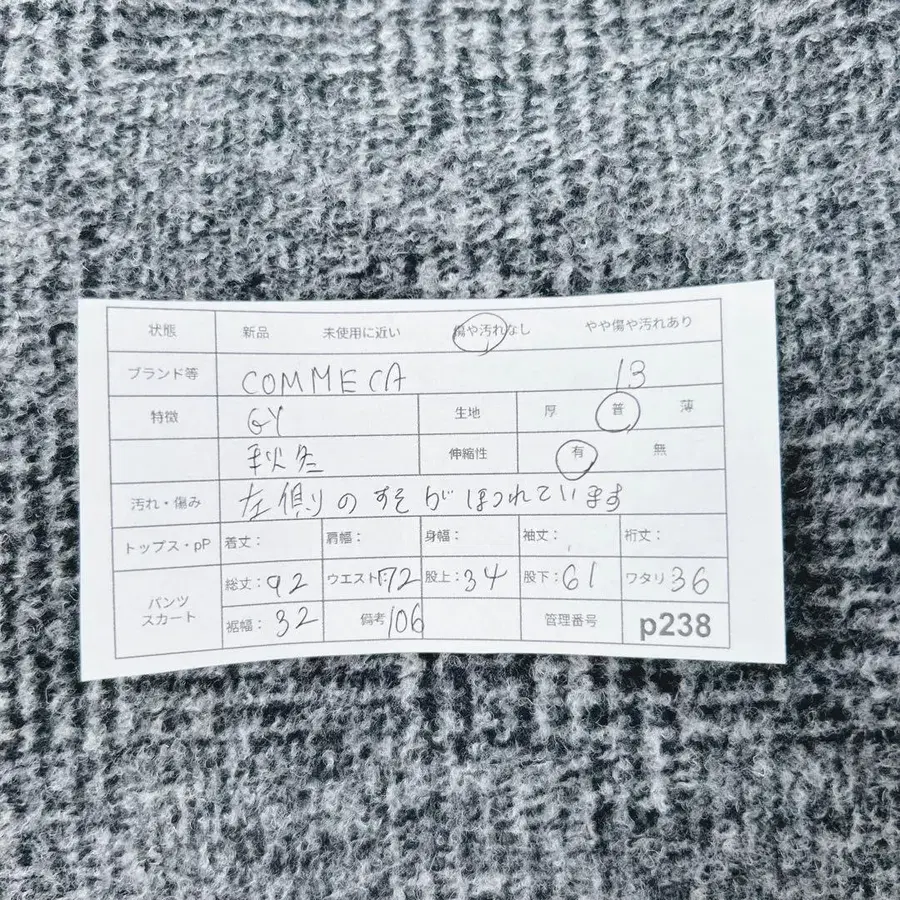 状態 新品 未使用に近い 傷や汚れなし やや傷や汚れあり
ブランド等 COMME CA 13
特徴 GY 生地 厚 普 薄
秋冬 伸縮性 有 無
汚れ・傷み 左側のすそがほつれています
トップス・pP 着丈: 肩幅: 身幅: 袖丈: 裄丈:
パンツ スカート 総丈:92 ウエスト:72 股上:34 股下:61 ワタリ36
裾幅: 32 備考106 管理番号 p238